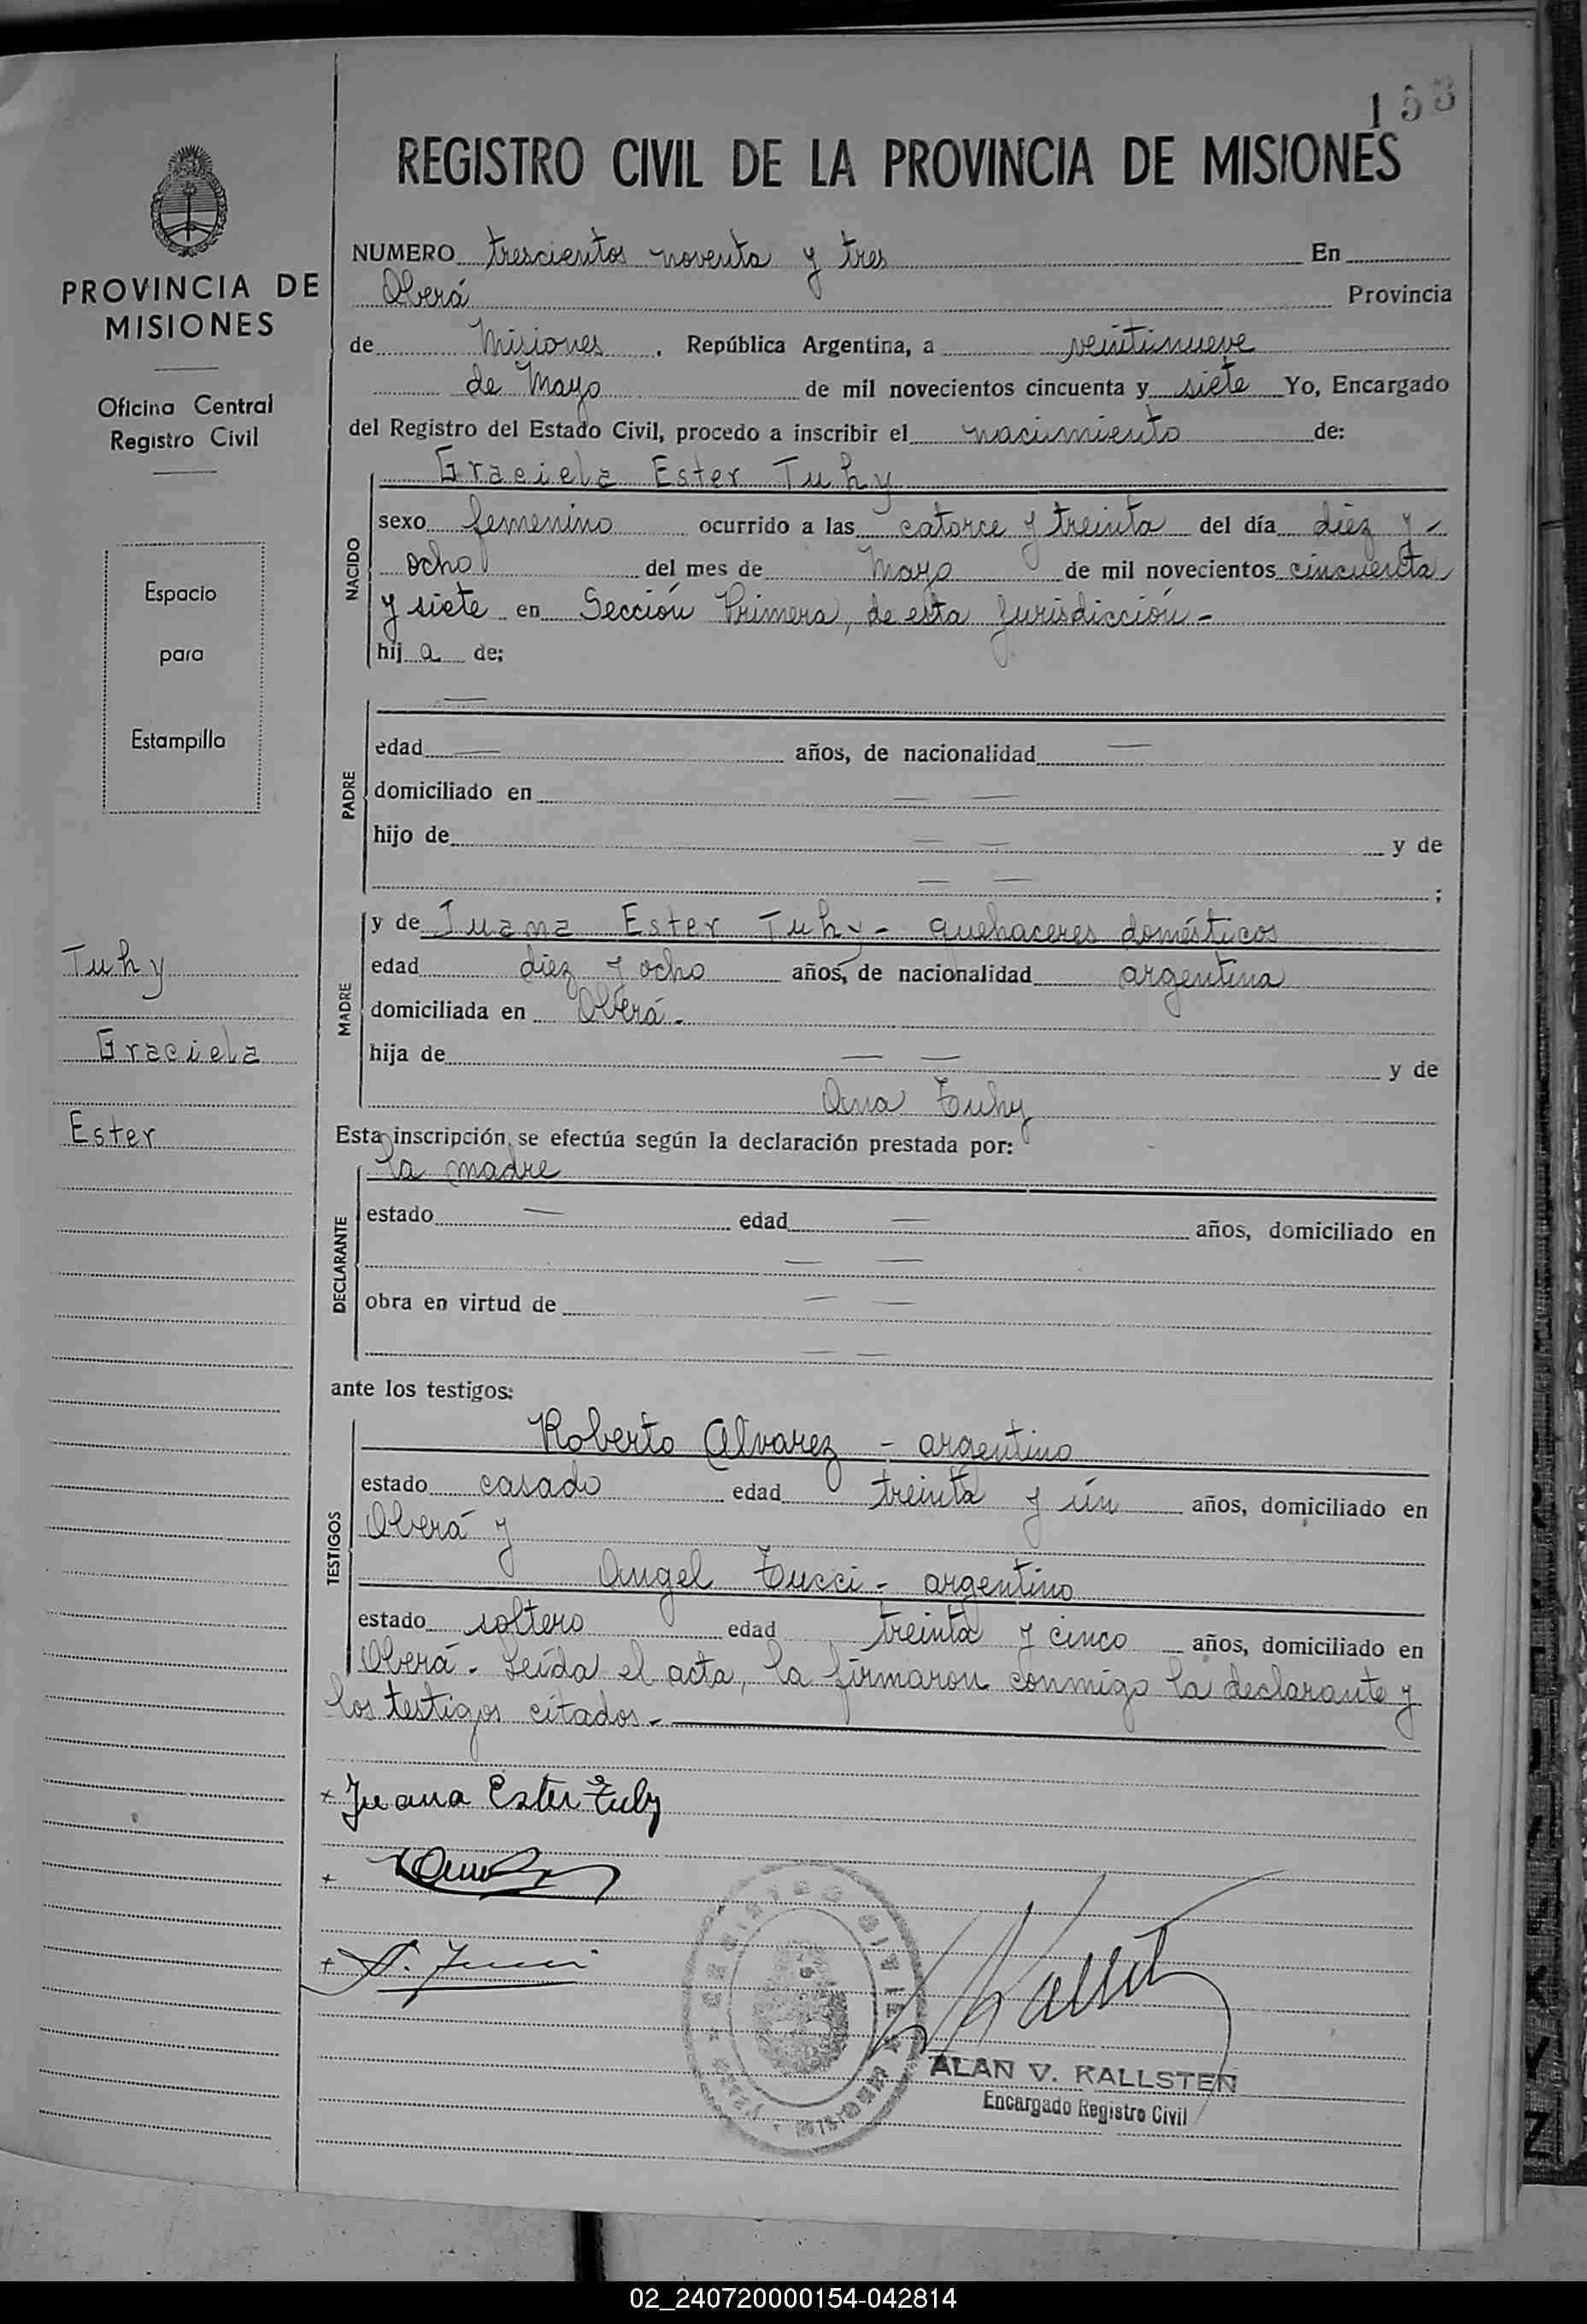 153
REGISTRO CIVIL DE LA PROVINCIA DE MISIONES
PROVINCIA DE
MISIONES
Oficina Central
Registro Civil
Espacio
para
Estampilla
Tuhy
Graciela
Ester
NUMERO trescientos noventa y tres En
Oberá Provincia
de Misiones, República Argentina, a veintinueve
de Mayo de mil novecientos cincuenta y siete Yo, Encargado
del Registro del Estado Civil, procedo a inscribir el nacimiento de:
NACIDO
Graciela Ester Tuhy
sexo femenino ocurrido a las catorce y treinta del día diez y -
ocho del mes de Mayo de mil novecientos cincuenta
y siete en Sección Primera, de esta Jurisdicción -
hij a de;
PADRE
—
edad — años, de nacionalidad —
domiciliado en — —
hijo de — — y de
— — ;
MADRE
y de Juana Ester Tuhy - quehaceres domésticos
edad diez y ocho años, de nacionalidad argentina
domiciliada en Oberá -
hija de — — y de
Ana Tuhy
Esta inscripción se efectúa según la declaración prestada por:
DECLARANTE
la madre
estado — edad — años, domiciliado en
— —
obra en virtud de — —
— —
ante los testigos:
TESTIGOS
Roberto Alvarez - argentino
estado casado edad treinta y ún años, domiciliado en
Oberá y
Angel Tucci - argentino
estado soltero edad treinta y cinco años, domiciliado en
Oberá - Leída el acta, la firmaron conmigo la declarante y
los testigos citados -
x Juana Ester Tuhy
x
x A. Tucci
REGISTRO CIVIL
ALAN V. KALLSTEN
Encargado Registro Civil
02_240720000154-042814